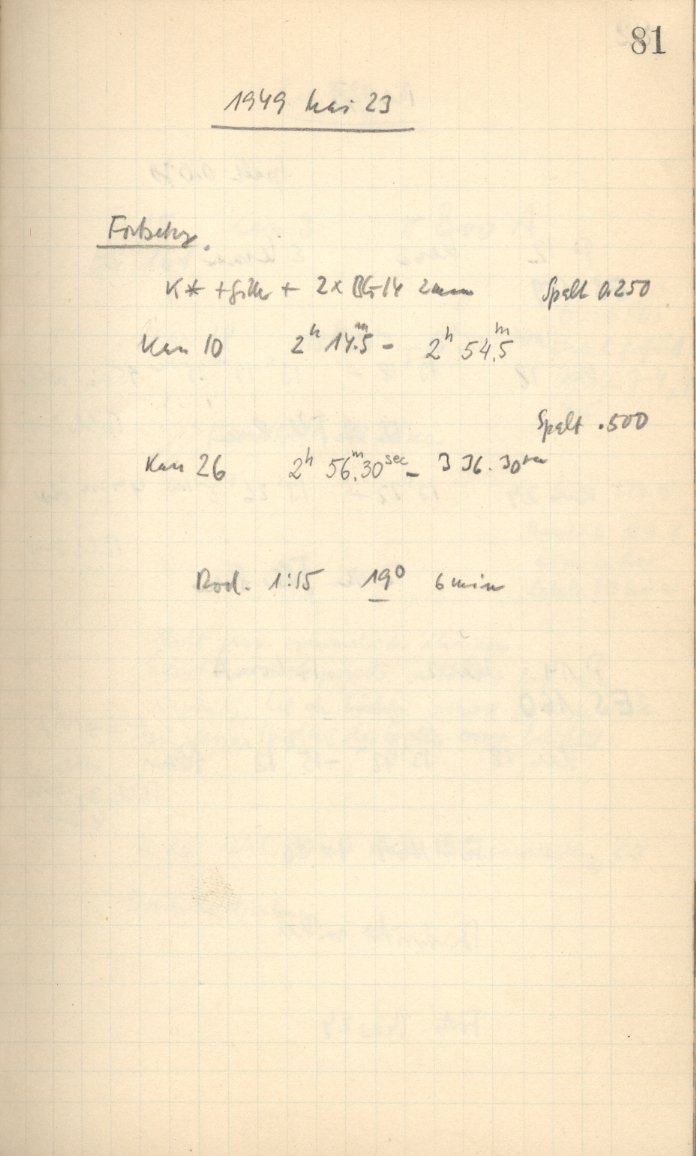 81
1949 Mai 23
Fortsetzg.
K* + Gitter + 2x BG 14 2mm Spalt 0.250
Kas 10 2h 14.m5 - 2h 54.m5
Spalt .500
Kas 26 2h 56.m30sec - 3 36.30sec
Rod. 1:15 19° 6 min